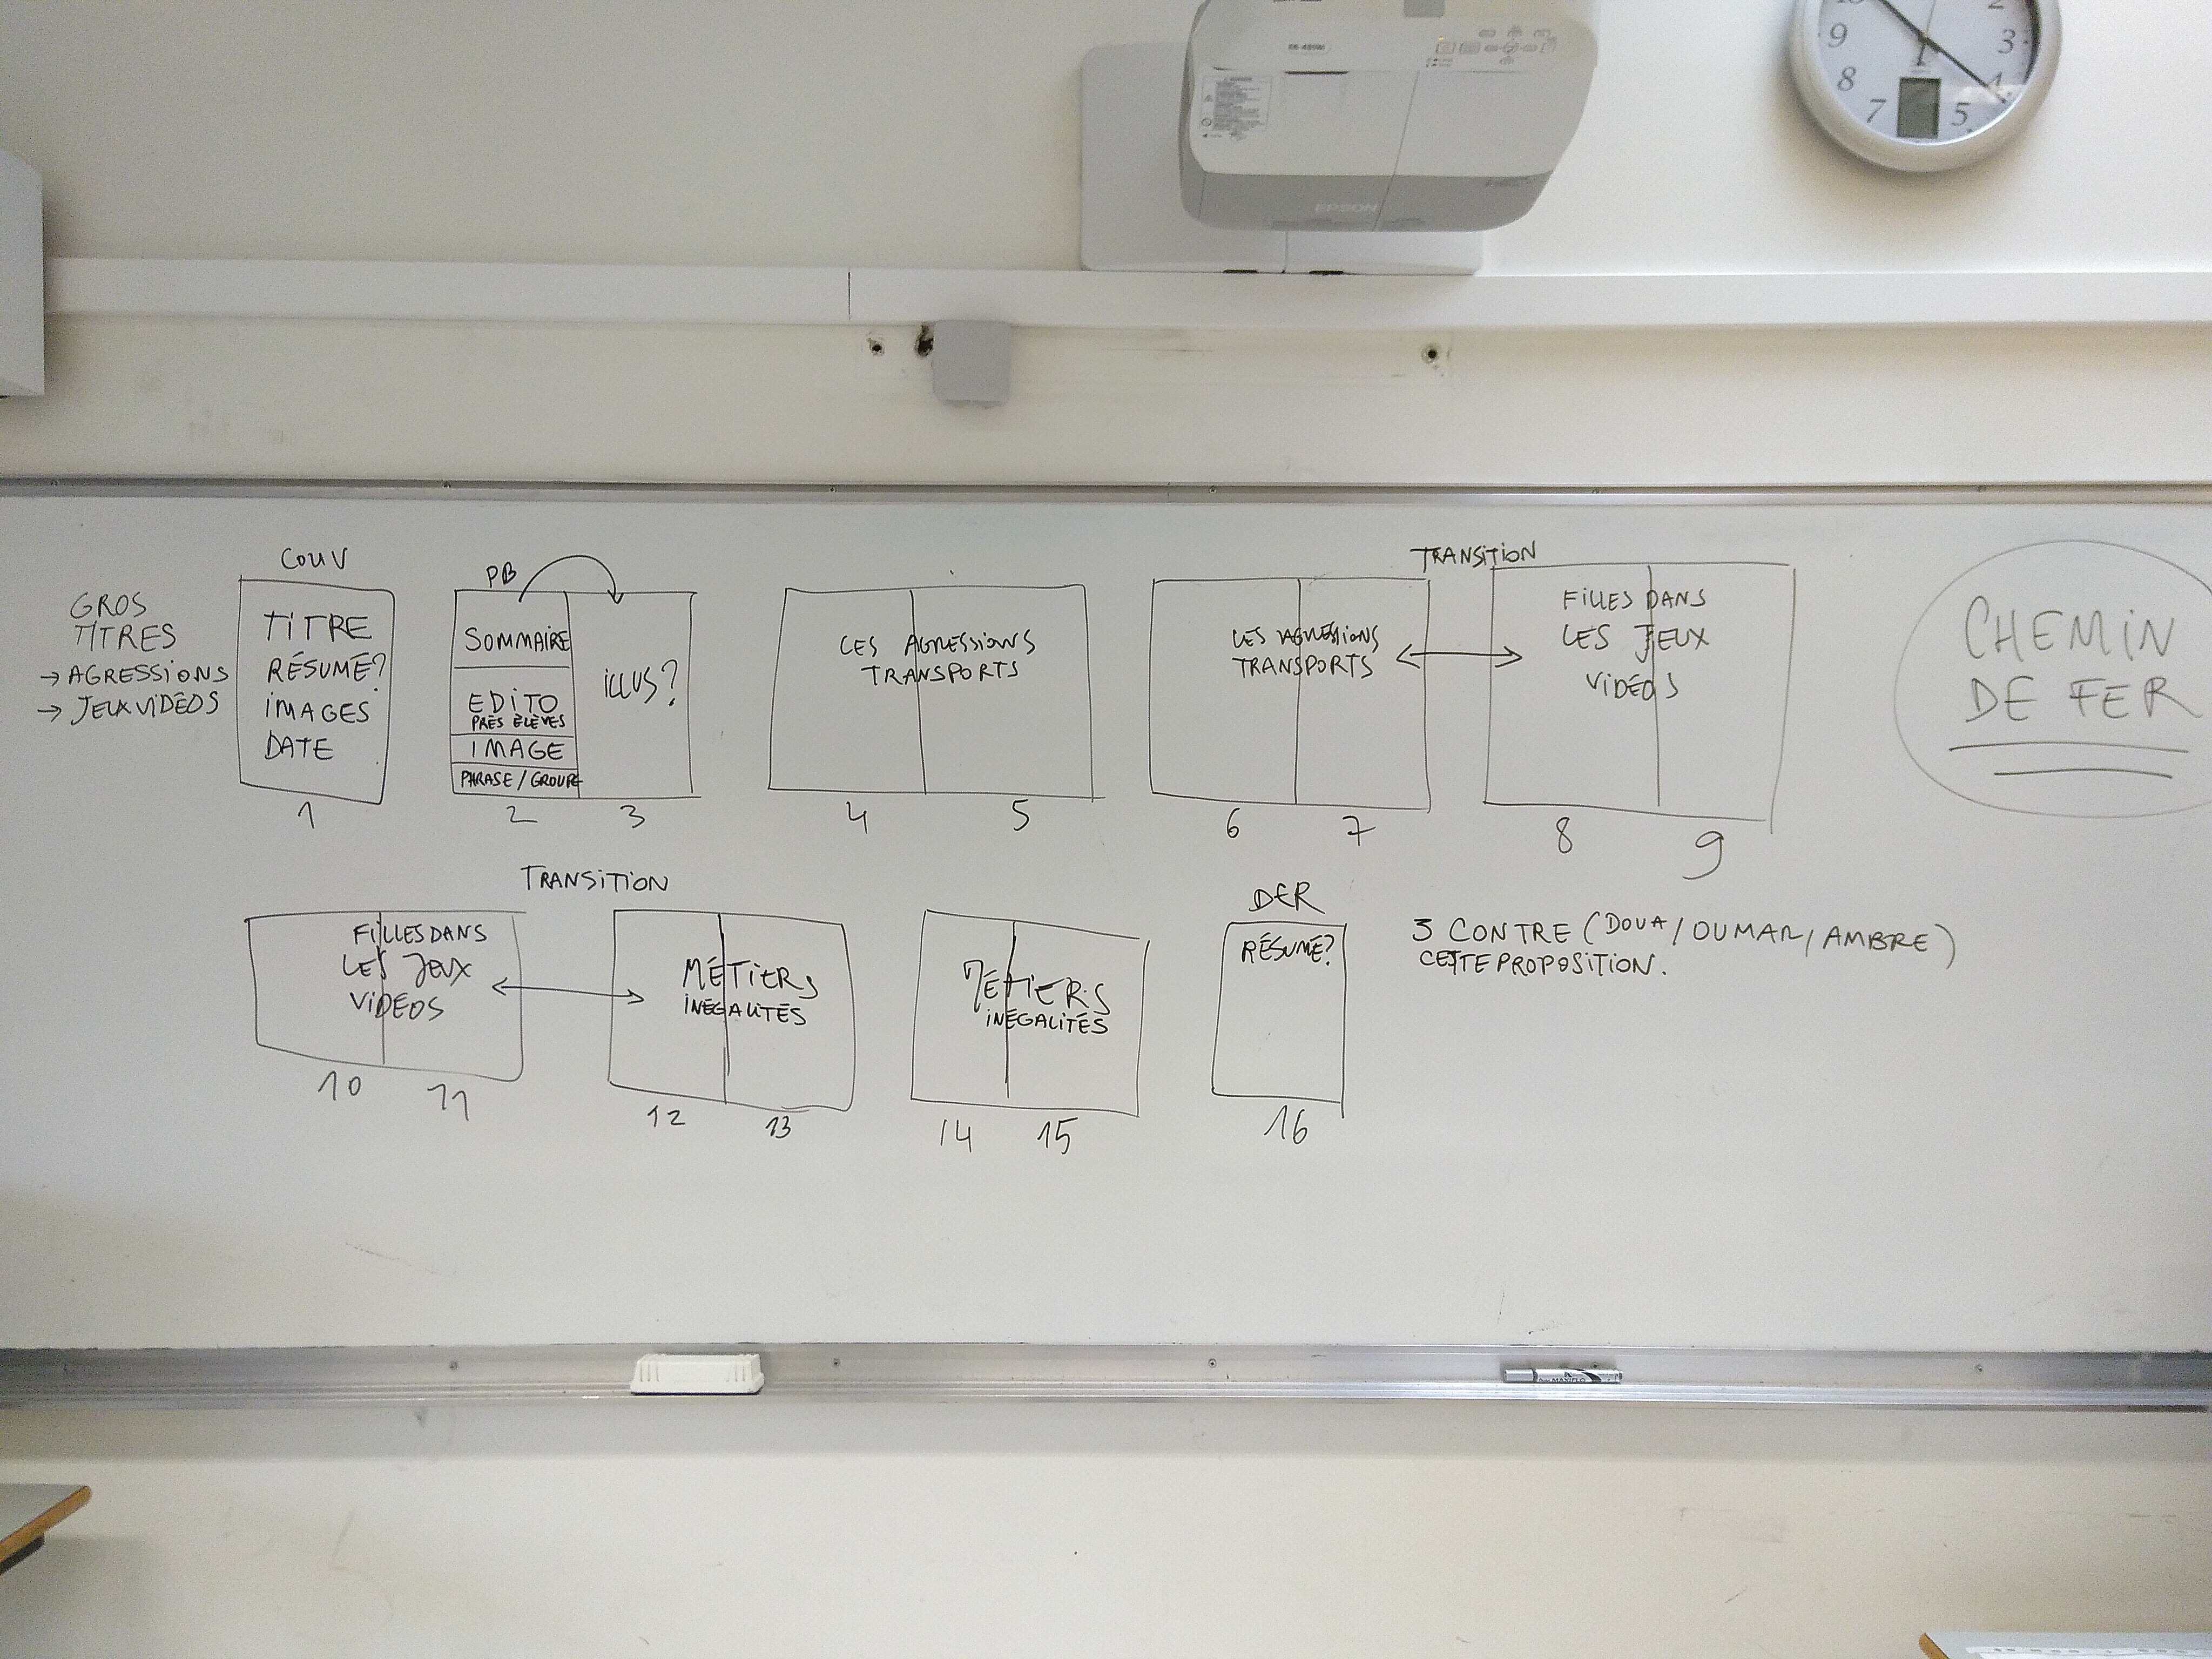 EPSON
2
9
3
8
4
7
5
COUV
GROS
TITRES
→ AGRESSIONS
→ JEUX VIDÉOS
TITRE
RÉSUMÉ?
IMAGES
DATE
1
PB
SOMMAIRE
EDITO
PRÉS ÉLÈVES
IMAGE
PHRASE / GROUPE
ILLUS?
2
3
LES AGRESSIONS
TRANSPORTS
4
5
LES AGRESSIONS
TRANSPORTS
6
7
TRANSITION
FILLES DANS
LES JEUX
VIDÉOS
8
9
CHEMIN
DE FER
TRANSITION
FILLES DANS
LES JEUX
VIDÉOS
10
11
MÉTIERS
INÉGALITÉS
12
13
MÉTIERS
INÉGALITÉS
14
15
DER
RÉSUMÉ?
16
3 CONTRE (DOUA / OUMAR / AMBRE)
CETTE PROPOSITION.